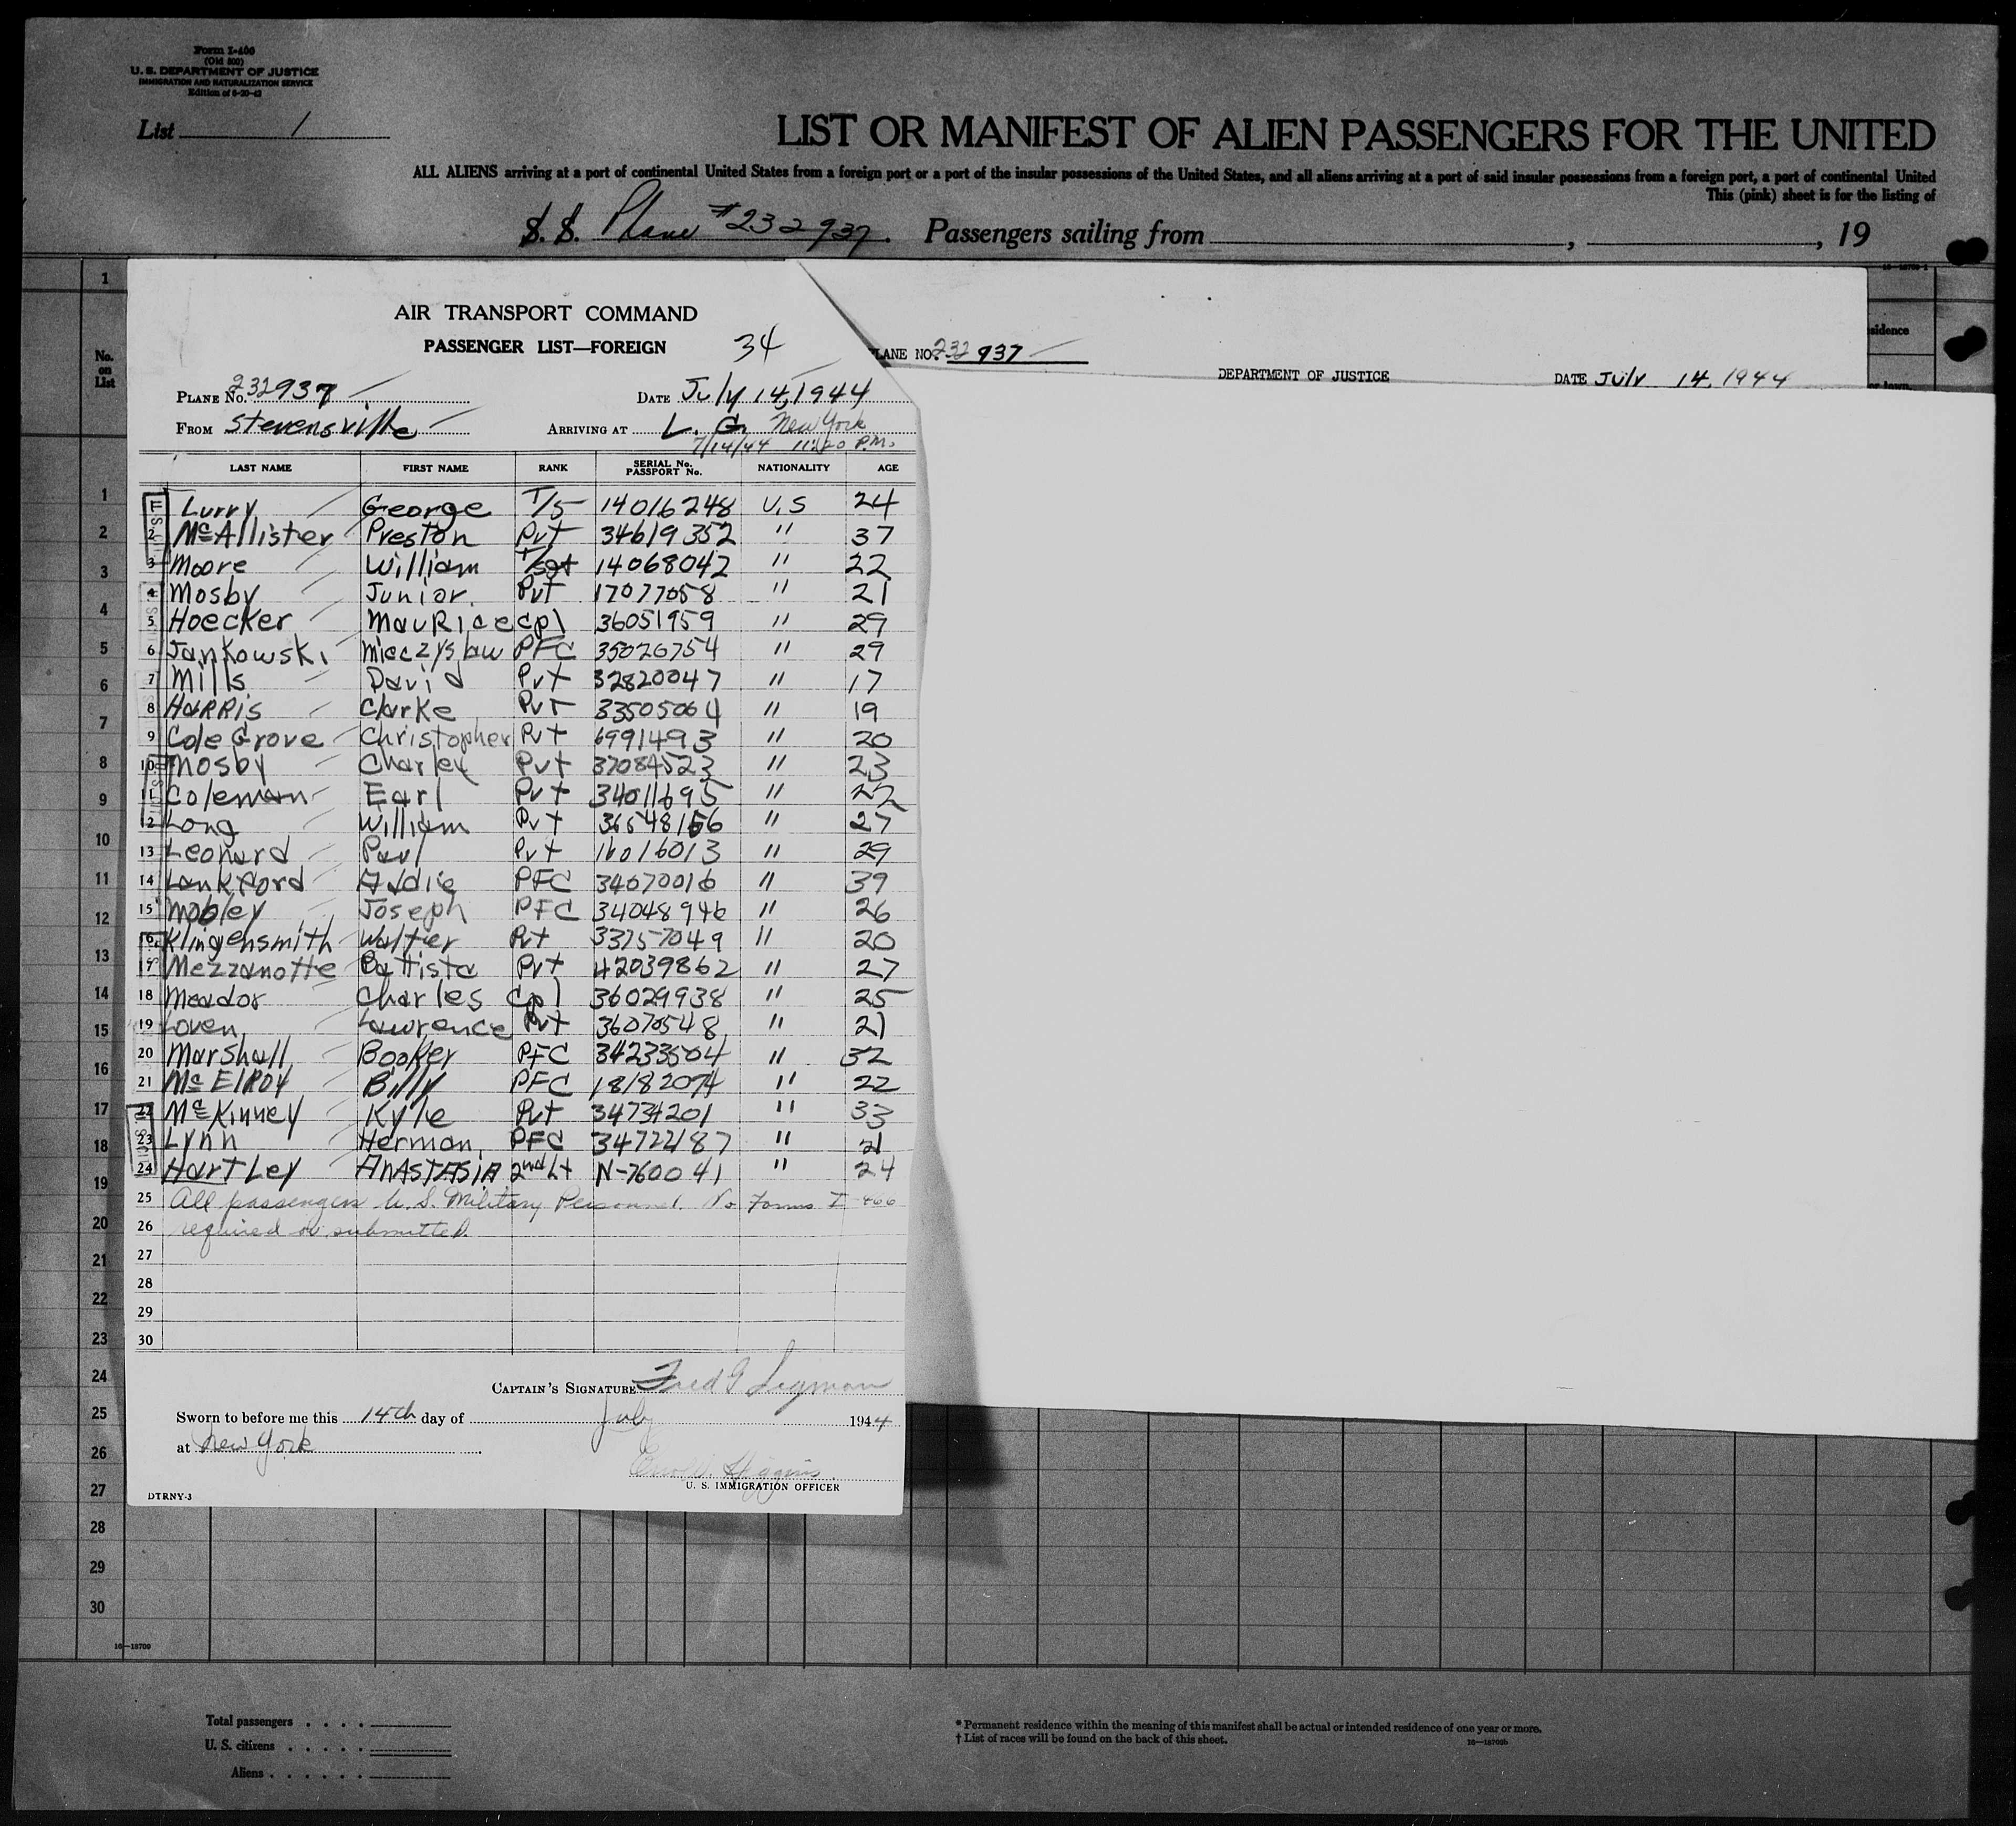 Form I-400
(Old 500)
U. S. DEPARTMENT OF JUSTICE
IMMIGRATION AND NATURALIZATION SERVICE
Edition of 6-20-42
List 1
LIST OR MANIFEST OF ALIEN PASSENGERS FOR THE UNITED
ALL ALIENS arriving at a port of continental United States from a foreign port or a port of the insular possessions of the United States, and all aliens arriving at a port of said insular possessions from a foreign port, a port of continental United
This (pink) sheet is for the listing of
S. S. Plane #232937. Passengers sailing from , , 19
AIR TRANSPORT COMMAND
PASSENGER LIST—FOREIGN 34
PLANE NO. 232937
DATE July 14, 1944
FROM Stevensville
ARRIVING AT L. G. New York
7/14/44 11:20 P.M.
LANE NO. 232 937
DEPARTMENT OF JUSTICE DATE July 14, 1944
sidence
No. on List
LAST NAME FIRST NAME RANK SERIAL No. PASSPORT No. NATIONALITY AGE
1 Lurry George T/5 14016248 U.S 24
2 McAllister Preston Pvt 34619352 " 37
3 Moore William T/Sgt 14068042 " 22
4 Mosby Junior. Pvt 17077058 " 21
5 Hoecker Maurice cpl 36051959 " 29
6 Jankowski Mieczyslaw PFC 35026754 " 29
7 Mills David Pvt 32820047 " 17
8 HARRis Clarke Pvt 33505064 " 19
9 Cole Grove Christopher Pvt 6991493 " 20
10 Mosby Charley Pvt 37084523 " 23
11 Coleman Earl Pvt 34011695 " 22
12 Long William Pvt 36548166 " 27
13 Leonard Paul Pvt 16016013 " 29
14 Lankford Addie PFC 34070016 " 39
15 Mobley Joseph PFC 34048946 " 26
16 Klingensmith Walter Pvt 33757049 " 20
17 Mezzanotte Battista Pvt 42039862 " 27
18 Meador Charles Cpl 36029938 " 25
19 Loven Lawrence Pvt 36070548 " 21
20 Marshall Booker PFC 34233504 " 32
21 McElroy Billy PFC 18182074 " 22
22 McKinney Kyle Pvt 34734201 " 33
23 Lynn Herman. PFC 34722187 " 21
24 Hartley ANASTASIA 2nd Lt N-760041 " 24
25 All passengers U. S. Military Personnel. No Forms I-466
26 required or submitted.
27
28
29
30
CAPTAIN'S SIGNATURE Fred G Sigman
Sworn to before me this 14th day of July 1944
at New York
Higgins
U. S. IMMIGRATION OFFICER
DTRNY-3
1
2
3
4
5
6
7
8
9
10
11
12
13
14
15
16
17
18
19
20
21
22
23
24
25
26
27
28
29
30
16—18709
Total passengers . . . .
U. S. citizens . . . . .
Aliens . . . . . .
* Permanent residence within the meaning of this manifest shall be actual or intended residence of one year or more.
† List of races will be found on the back of this sheet.
16—18709b